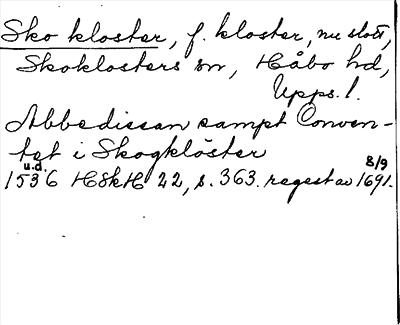 Sko kloster, f. kloster, nu slott,
Skoklosters sn, Håbo hd,
Upps. l.
Abbedissan sampt Conven-
tet i Skogklöster
u.d. 8/9
1536 HSkH 22, s. 363. regest av 1691.